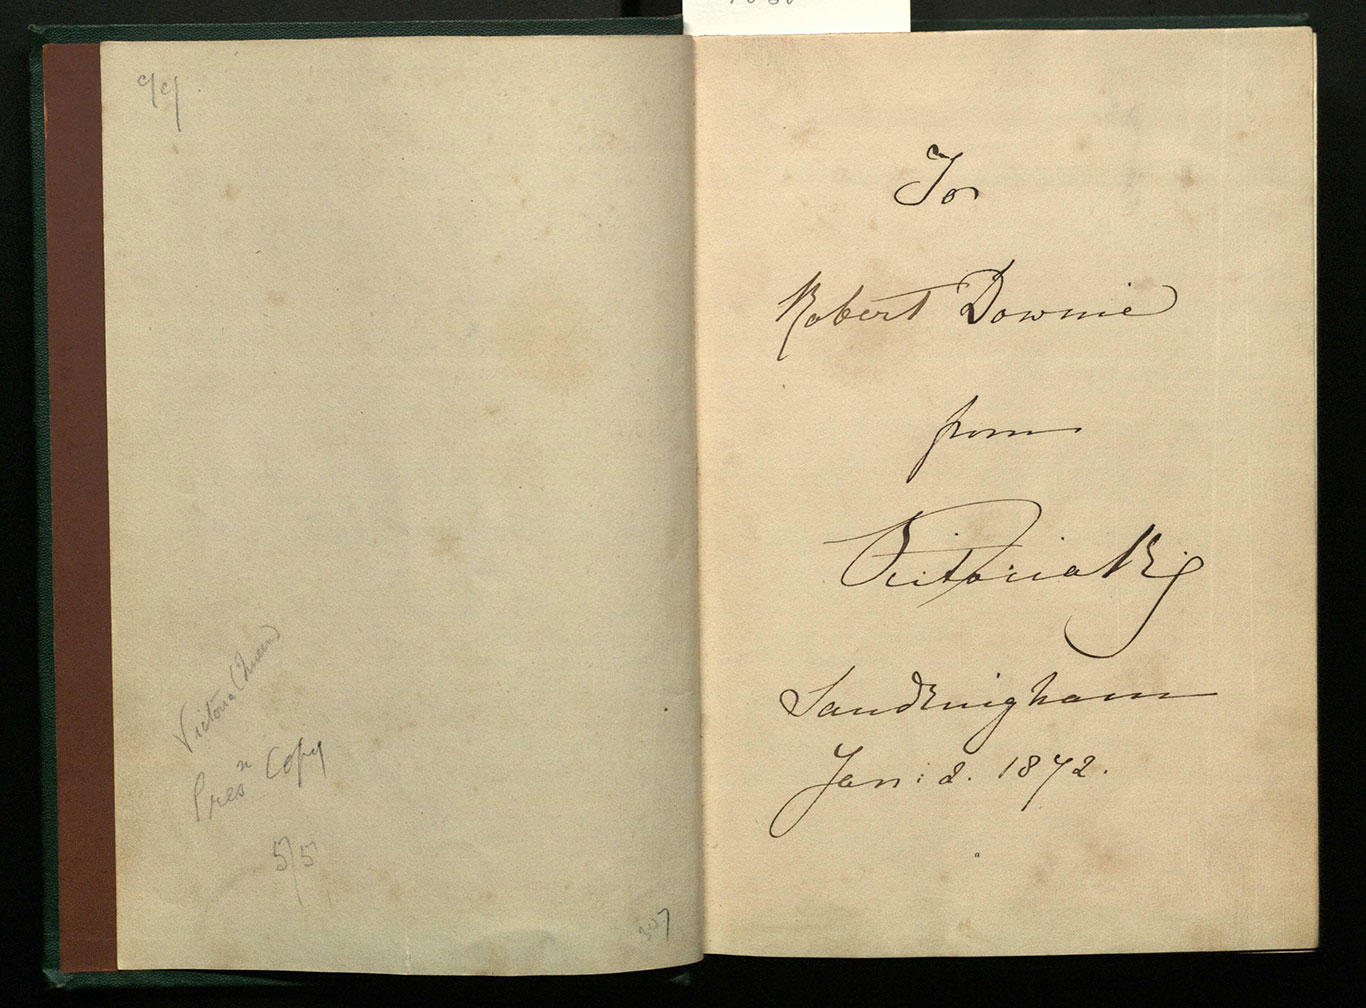 99
Victoria Queen
Presn Copy
5/5
307
To
Robert Downie
from
Victoria Rg
Sandringham
Jan: 2. 1872.